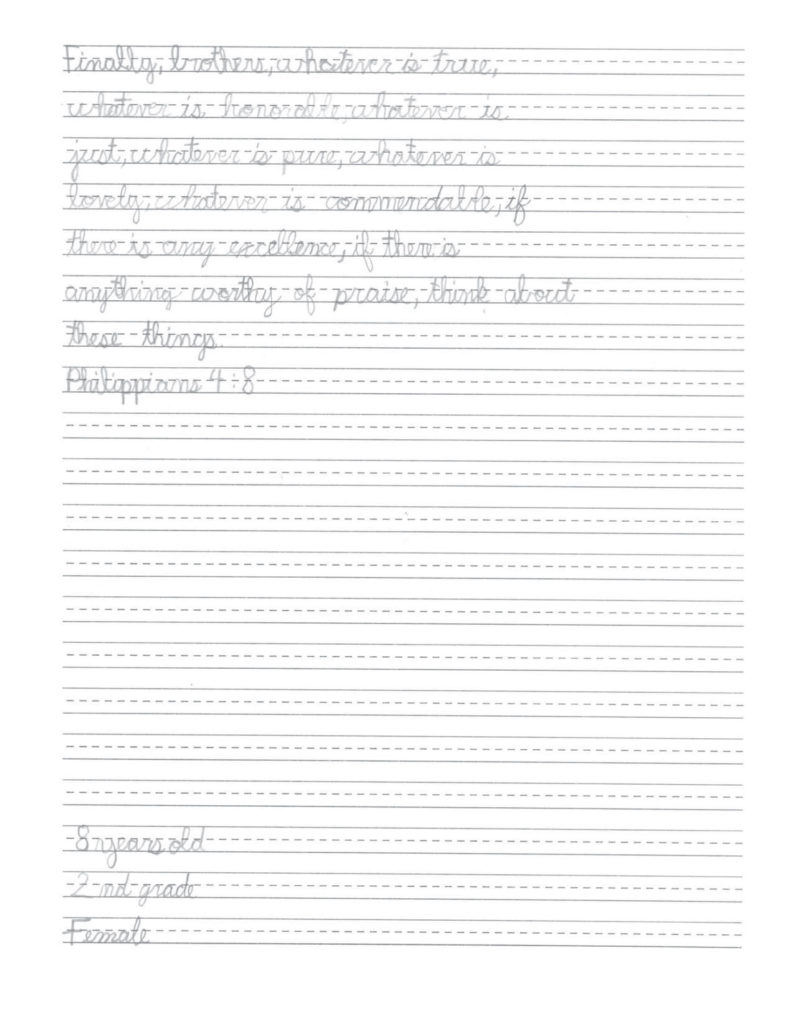 Finally, brothers, whatever is true,
whatever is honorable, whatever is
just, whatever is pure, whatever is
lovely, whatever is commendable, if
there is any excellence, if there is
anything worthy of praise, think about
these things.
Philippians 4:8
8 years old
2nd grade
Female